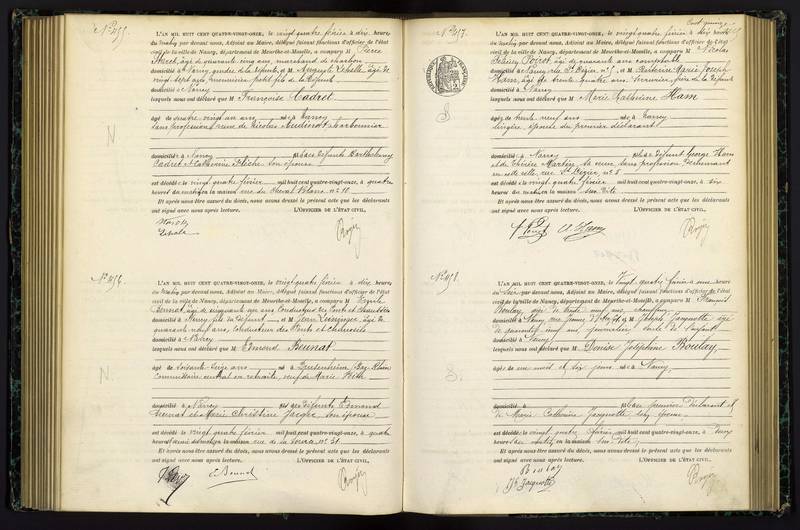 N° 455.
L'AN MIL HUIT CENT QUATRE-VINGT-ONZE, le vingt quatre février à dix heures
du matin par devant nous, Adjoint au Maire, délégué faisant fonctions d'officier de l'état
civil de la ville de Nancy, département de Meurthe-et-Moselle, a comparu M Pierre
âgé de quarante cinq ans, marchand de charbon
domicilié à Nancy, gendre de la défunte, et M Auguste âgé de
vingt sept ans, menuisier, petit fils de la défunte
domicilié à Nancy
lesquels nous ont déclaré que M Françoise Cadret
âgée de quatre vingt un ans née à Nancy
sans profession veuve de Nicolas charbonnier
domiciliée à Nancy des défunts Barthélemy
Cadret et Catherine son épouse
est décédée le vingt quatre février mil huit cent quatre-vingt-onze, à quatre
heures du matin en la maison rue du Cheval Blanc n° 18
Et après nous être assuré du décès, nous avons dressé le présent acte que les déclarants
ont signé avec nous après lecture. L'OFFICIER DE L'ÉTAT CIVIL,
N° 456.
L'AN MIL HUIT CENT QUATRE-VINGT-ONZE, le vingt quatre février à dix heures
du matin par devant nous, Adjoint au Maire, délégué faisant fonctions d'officier de l'état
civil de la ville de Nancy, département de Meurthe-et-Moselle, a comparu M Emile
Beunat, âgé de quarante six ans Conducteur des Ponts et Chaussées
domicilié à Nancy fils du défunt et M Jean âgé de
quarante neuf ans, Conducteur des Ponts et chaussées
domicilié à Nancy
lesquels nous ont déclaré que M Edmond Beunat
âgé de soixante seize ans né à (Bas Rhin)
commissaire central en retraite, veuf de Marie
N
domicilié à Nancy fils des défunts Edmond
Beunat et Marie Christine Jaeger son épouse
est décédé le vingt quatre février mil huit cent quatre-vingt-onze, à quatre
heures du matin en la maison rue de n° 31
Et après nous être assuré du décès, nous avons dressé le présent acte que les déclarants
ont signé avec nous après lecture. L'OFFICIER DE L'ÉTAT CIVIL,
E Beunat
N° 457.
L'AN MIL HUIT CENT QUATRE-VINGT-ONZE, le vingt quatre février à dix heures
du matin par devant nous, Adjoint au Maire, délégué faisant fonctions d'officier de l'état
civil de la ville de Nancy, département de Meurthe-et-Moselle, a comparu M Nicolas
Poirot, âgé de quarante ans comptable
domicilié à Nancy rue St Dizier n° 8 et M Marie Joseph
Ham, âgé de trente quatre ans, serrurier, frère de la défunte
domicilié à Nancy
lesquels nous ont déclaré que M Marie Catherine Ham
âgée de trente neuf ans née à Nancy
lingère épouse du premier déclarant
S
domiciliée à Nancy fille de défunt George Ham
et de Thérèse Martin sa veuve sans profession demeurant
en cette ville, rue St Dizier, n° 8
est décédée le vingt quatre février mil huit cent quatre-vingt-onze, à six
heures du matin en la maison sus dite
Et après nous être assuré du décès, nous avons dressé le présent acte que les déclarants
ont signé avec nous après lecture. L'OFFICIER DE L'ÉTAT CIVIL,
N° 458.
L'AN MIL HUIT CENT QUATRE-VINGT-ONZE, le vingt quatre février à une heure
du soir par devant nous, Adjoint au Maire, délégué faisant fonctions d'officier de l'état
civil de la ville de Nancy, département de Meurthe-et-Moselle, a comparu M François
Boulay, âgé de trente neuf ans
domicilié à Nancy et M Joseph Jacquotte âgé
de ans, de l'enfant
domicilié à Nancy
lesquels nous ont déclaré que M Denise Joséphine Boulay,
âgée de un mois et six jours née à Nancy,
domiciliée à fille du premier déclarant et
de Marie Catherine Jacquotte son épouse
est décédée le vingt quatre février mil huit cent quatre-vingt-onze, à
heures du matin en la maison sus dite
Et après nous être assuré du décès, nous avons dressé le présent acte que les déclarants
ont signé avec nous après lecture. L'OFFICIER DE L'ÉTAT CIVIL,
Boulay
Jacquotte